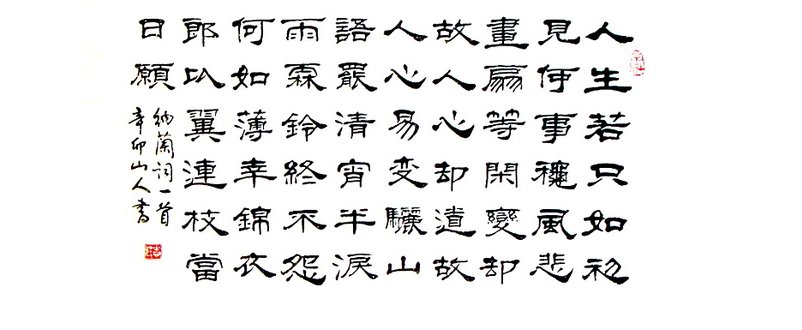 人生若只如初
見何事穐風悲
畫扇等閑變却
故人心却道故
人心易变驪山
語罷清宵半淚
雨霖鈴終不怨
何如薄幸錦衣
郎比翼連枝當
日願
納蘭詞一首
辛卯山人書